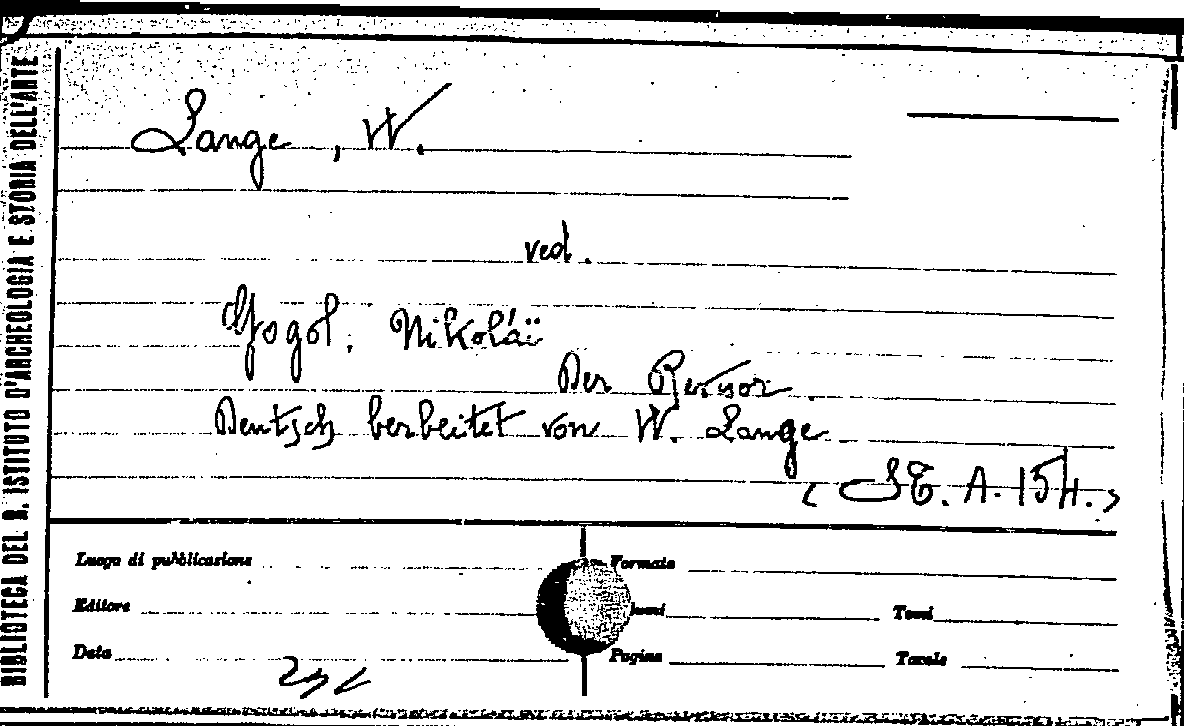 BIBLIOTECA DEL R. ISTITUTO D'ARCHEOLOGIA E STORIA DELL'ARTE
Lange, W.
ved.
Gogol, Nikolái
Der Revisor.
Deutsch berbeitet von W. Lange
(SE. A. 154.)
Luogo di pubblicazione
Formato
Editore
Tomi
Data
Pagine
Tavole